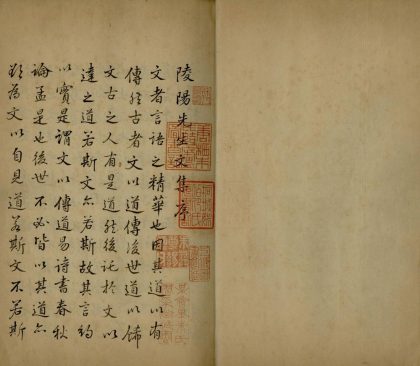 陵陽先生文集序
文者言語之精華也因其道以有
傳於古者文以道傳後世道以飾
文古之人有是道於後託於文以
達之道若斯文亦若斯故其言約
以實是謂文以傳道易詩書春秋
論孟是也後世不必皆以其道亦
為文以自見道若斯文不若斯